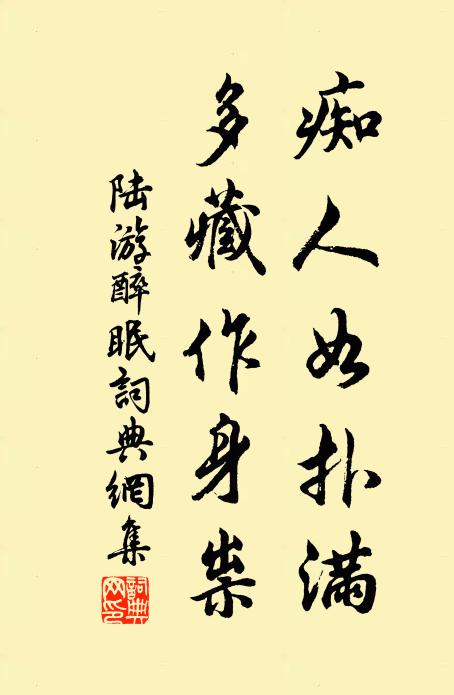 痴人如扑满
多藏作身祟
陆游醉眠詞典網集
詞典网印